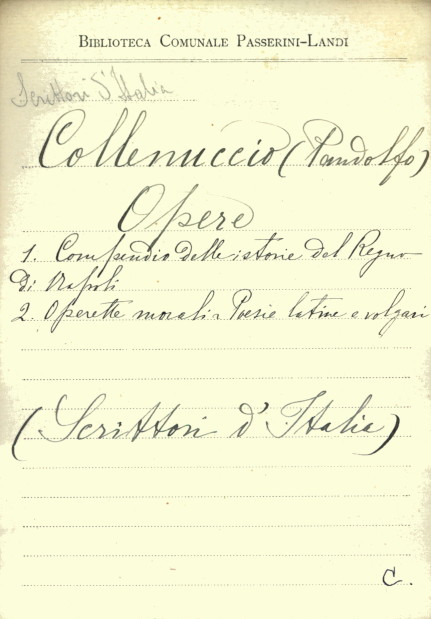 BIBLIOTECA COMUNALE PASSERINI-LANDI
Scrittori d'Italia
Collenuccio (Pandolfo)
Opere
1. Compendio delle istorie del Regno
di Napoli
2. Operette morali. Poesie latine e volgari
(Scrittori d'Italia)
C.